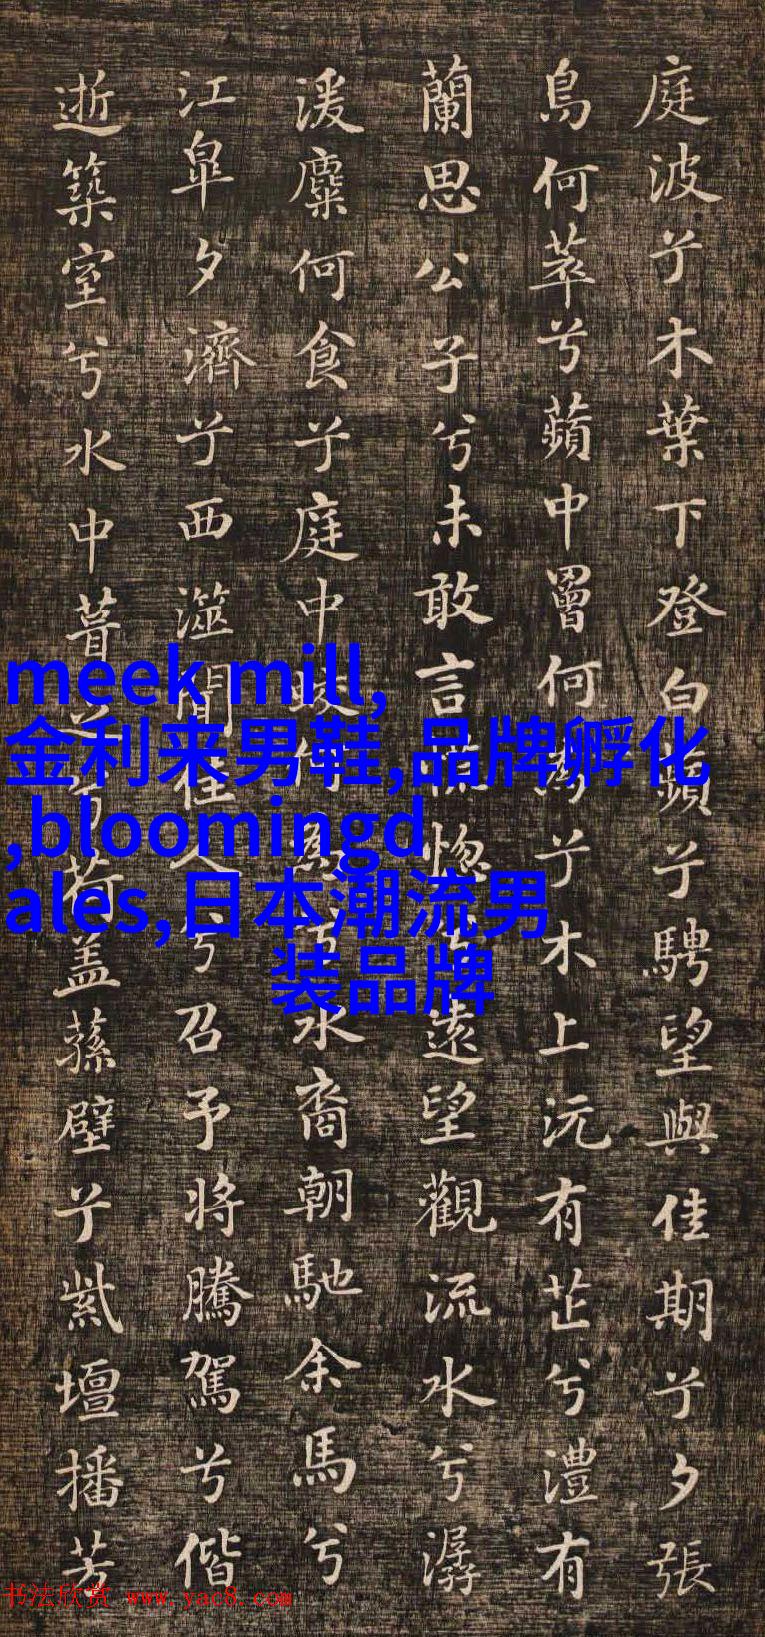 庭波兮木葉下登白蘋兮騁望與佳期兮夕張
鳥何萃兮蘋中罾何為兮木上沅有芷兮澧有
蘭思公子兮未敢言慌惚兮遠望觀流水兮潺
湲麋何食兮庭中蛟何為兮水裔朝馳余馬兮
江皐夕濟兮西澨聞佳人兮召予將騰駕兮偕
逝築室兮水中葺之兮荷蓋蓀壁兮紫壇播芳
meek mill,
金利来男鞋,品牌孵化
,bloomingd
ales,日本潮流男
装品牌
书法欣赏 www.yac8.com